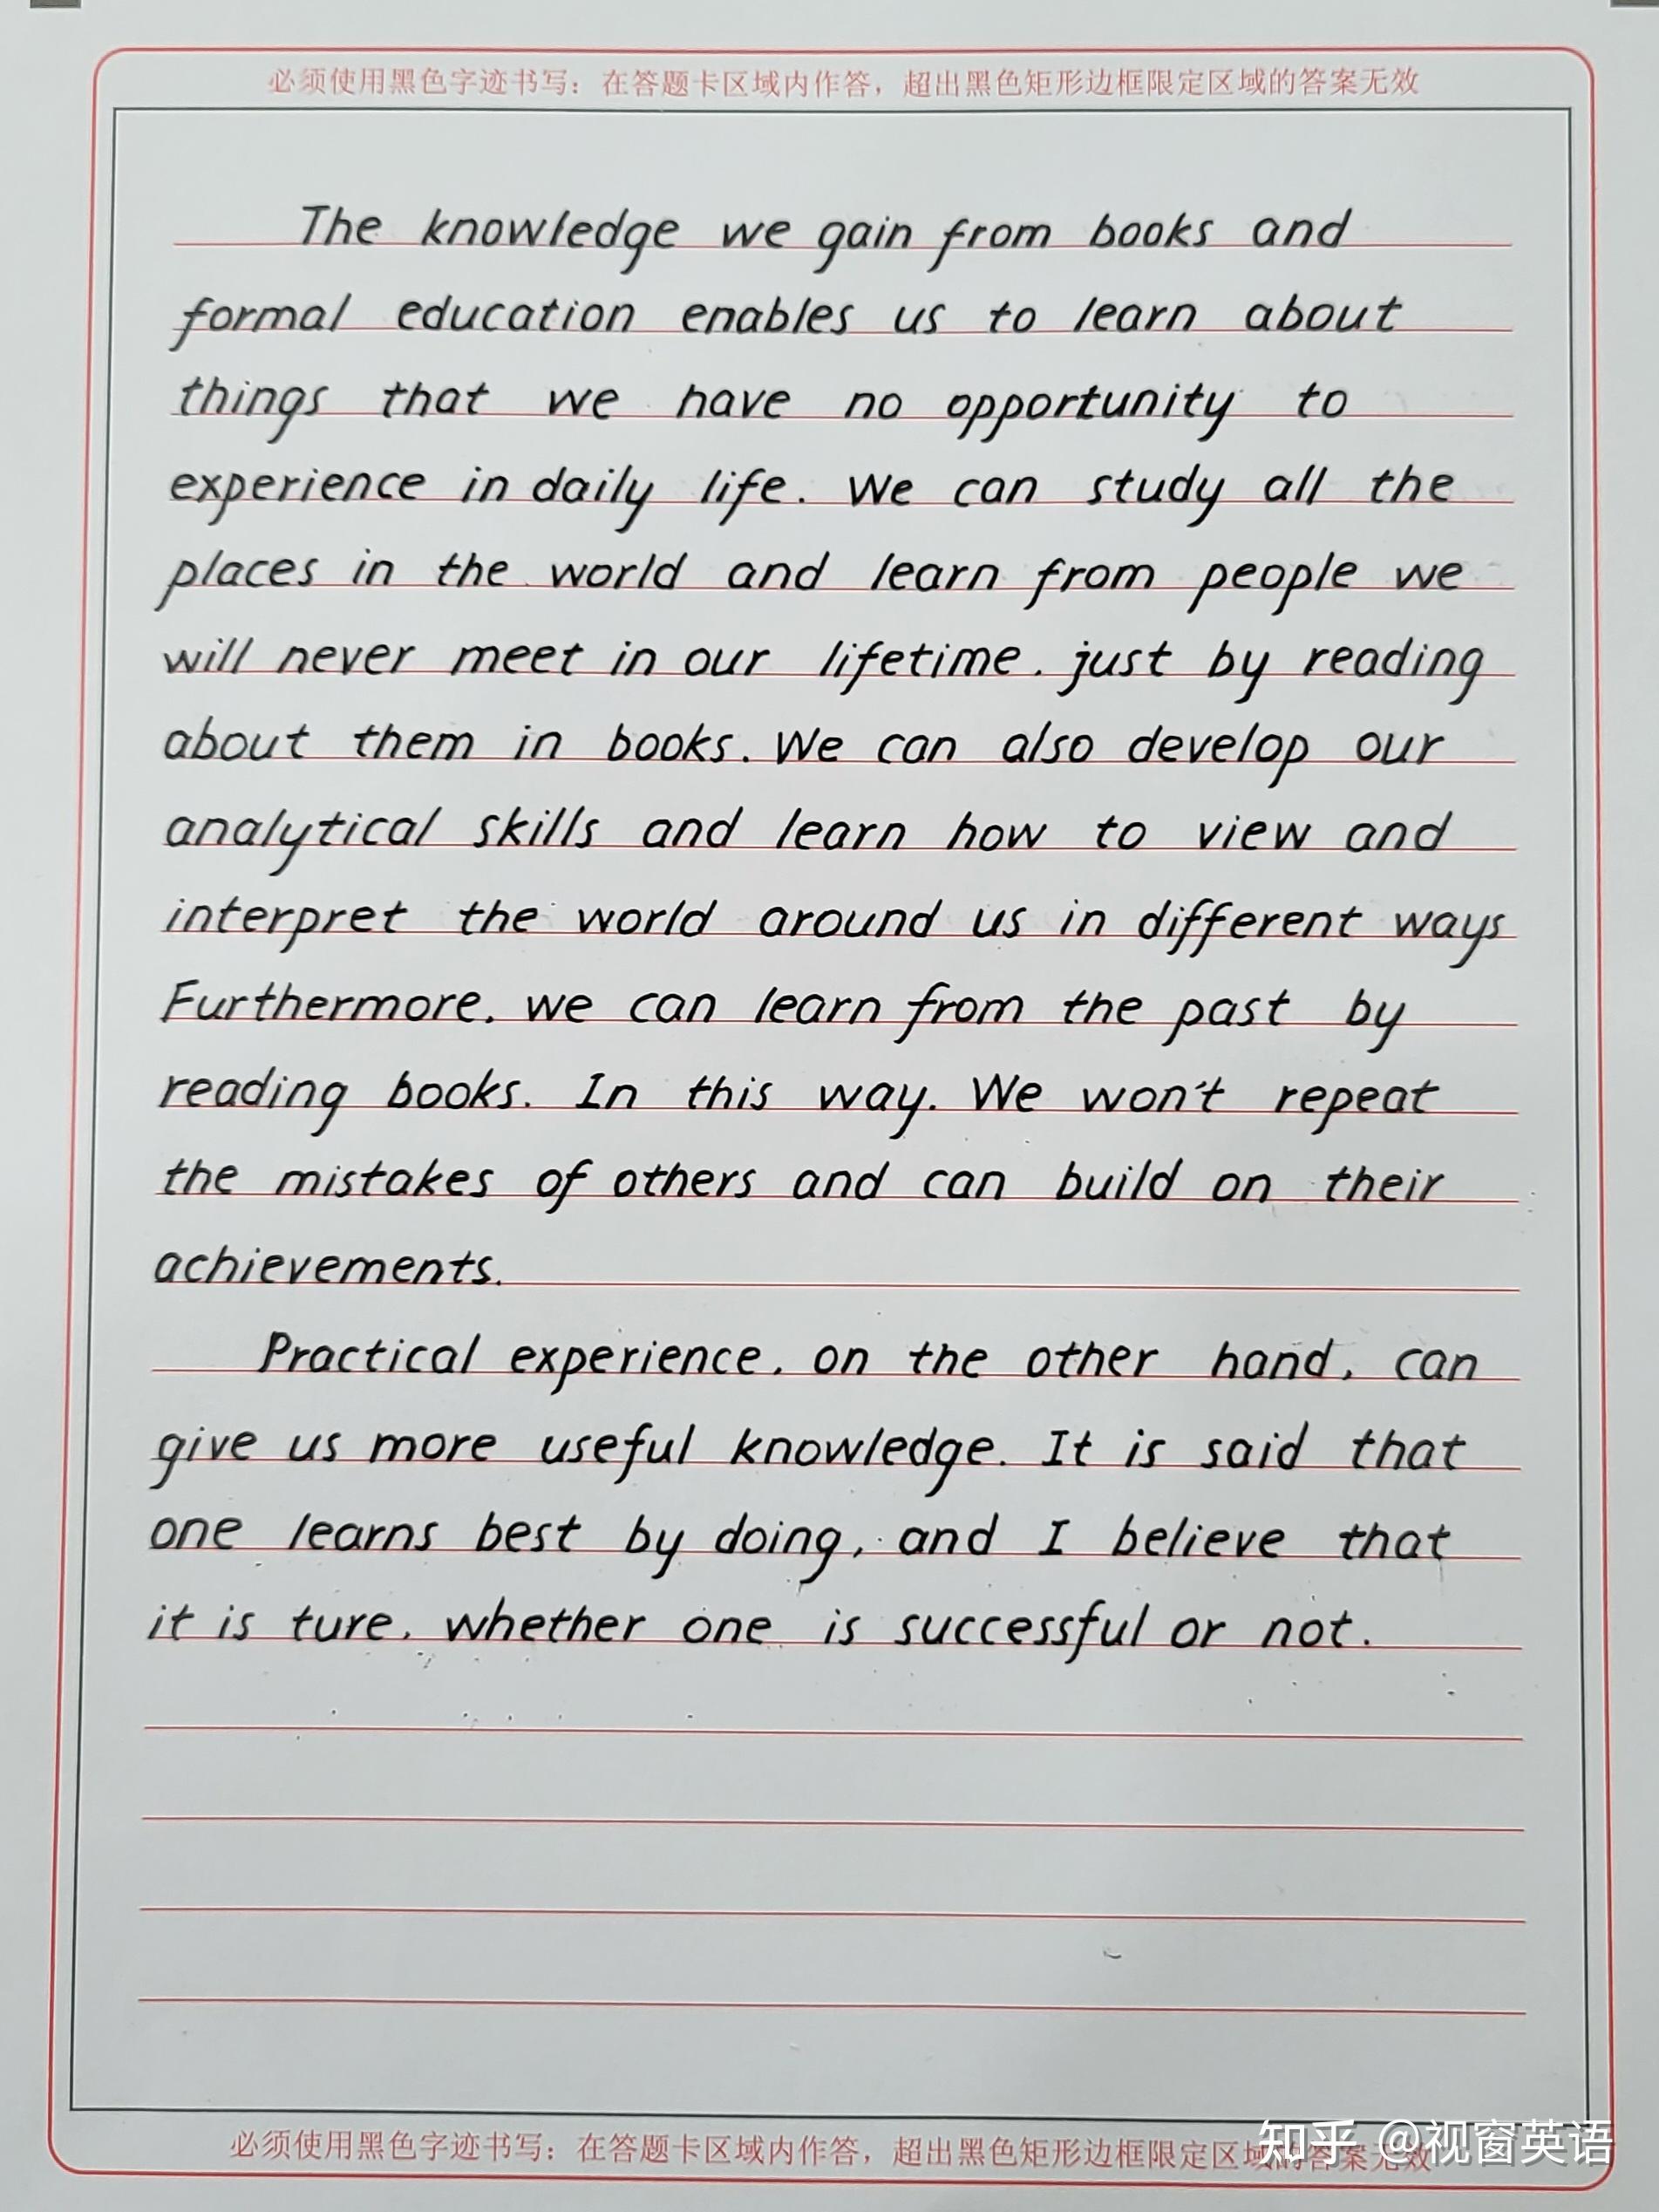 必须使用黑色字迹书写：在答题卡区域内作答，超出黑色矩形边框限定区域的答案无效
The knowledge we gain from books and
formal education enables us to learn about
things that we have no opportunity to
experience in daily life. We can study all the
places in the world and learn from people we
will never meet in our lifetime. just by reading
about them in books. We can also develop our
analytical skills and learn how to view and
interpret the world around us in different ways
Furthermore. we can learn from the past by
reading books. In this way. We won't repeat
the mistakes of others and can build on their
achievements.
Practical experience. on the other hand, can
give us more useful knowledge. It is said that
one learns best by doing, and I believe that
it is ture. whether one is successful or not.
必须使用黑色字迹书写：在答题卡区域内作答，超出黑色矩形边框限定区域的答案无效
知乎 @视窗英语